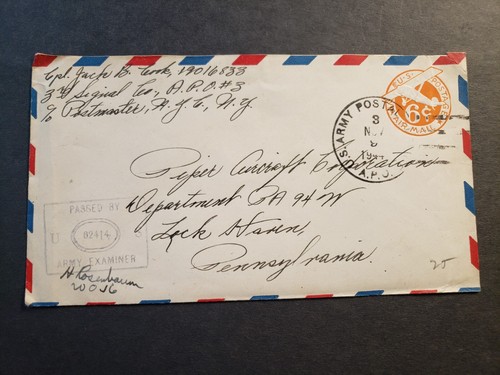 Cpl. Jack B. Cook, 19016833
3rd Signal Co., A.P.O. #3
c/o Postmaster, N.Y.C., N.Y.
U.S. POSTAGE
6¢
VIA AIR MAIL
U.S. ARMY POSTAL
3
A.P.O.
Piper Aircraft Corporation
Department PA 94 W
Lock Haven,
Pennsylvania.
PASSED BY
U S
02414
ARMY EXAMINER
H Rosenbaum
WOJG
25